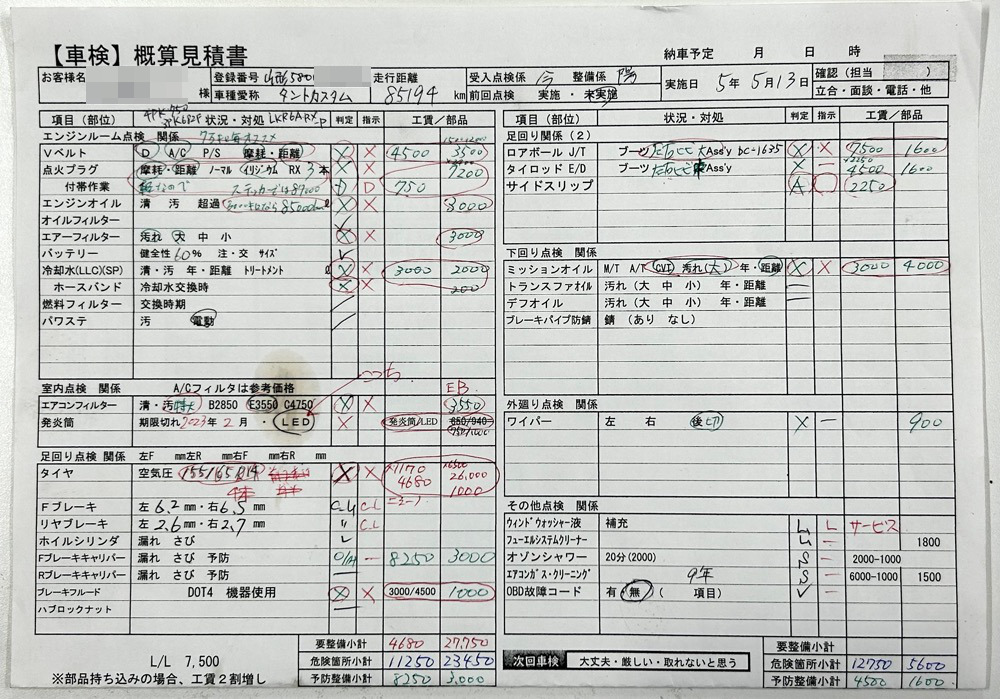 【車検】概算見積書
納車予定 月 日 時
お客様名 様
登録番号 山形580 走行距離
車種愛称 タントカスタム 85194 km
受入点検係 今 整備係 陽
前回点検 実施・未実施
実施日 5年5月13日
確認(担当 )
立合・面談・電話・他
項目(部位) 状況・対処 判定 指示 工賃/部品
エンジンルーム点検 関係
Vベルト D A/C P/S 摩耗・距離 X X 4500 3500
点火プラグ 摩耗・距離 ノーマル イリジウム RX 3本 X X 7200
付帯作業 D 750
エンジンオイル 清 汚 超過 X X 3000
オイルフィルター
エアーフィルター 汚れ 大 中 小 X X 3000
バッテリー 健全性 60% 注・交 サイズ
冷却水(LLC)(SP) 清・汚 年・距離 トリートメント ℓ X X 3000 2000
ホースバンド 冷却水交換時 X X 200
燃料フィルター 交換時期
パワステ 汚 電動
室内点検 関係 A/Cフィルタは参考価格
エアコンフィルター 清・汚 特大 B2850 E3550 C4750 X X EB. 3550
発炎筒 期限切れ 2023年 2月 ・ LED X 発炎筒/LED 650/940
足回り点検 関係 左F mm左R mm右F mm右R mm
タイヤ 空気圧 155/65R14 X X 4680 26,000 1000
Fブレーキ 左 6.2 mm・右 6.5 mm C.L
リヤブレーキ 左 2.6 mm・右 2.7 mm 〃 C.L
ホイルシリンダ 漏れ さび
Fブレーキキャリパー 漏れ さび 予防 O/H 8250 3000
Rブレーキキャリパー 漏れ さび 予防
ブレーキフルード DOT4 機器使用 X X 3000/4500 1000
ハブロックナット
L/L 7,500
※部品持ち込みの場合、工賃2割増し
要整備小計 4680 27,750
危険箇所小計 11250 23450
予防整備小計 8250 3,000
項目(部位) 状況・対処 判定 指示 工賃/部品
足回り関係(2)
ロアボールJ/T ブーツ Ass'y bc-1635 X X 7500 1600
タイロッドE/D ブーツ Ass'y X 4500 1600
サイドスリップ A 2250
下回り点検 関係
ミッションオイル M/T A/T CVT 汚れ(大) 年・距離 X X 3000 4000
トランスファオイル 汚れ(大 中 小) 年・距離
デフオイル 汚れ(大 中 小) 年・距離
ブレーキパイプ防錆 錆(あり なし)
外廻り点検 関係
ワイパー 左 右 後 X 900
その他点検 関係
ウィンドウォッシャー液 補充 L L サービス
フューエルシステムクリーナー 1800
オゾンシャワー 20分(2000) 2000-1000
エアコンガス・クリーニング 9年 6000-1000 1500
OBD故障コード 有・無( 項目)
次回車検 大丈夫・厳しい・取れないと思う
要整備小計
危険箇所小計 12750 5600
予防整備小計 4500 1600